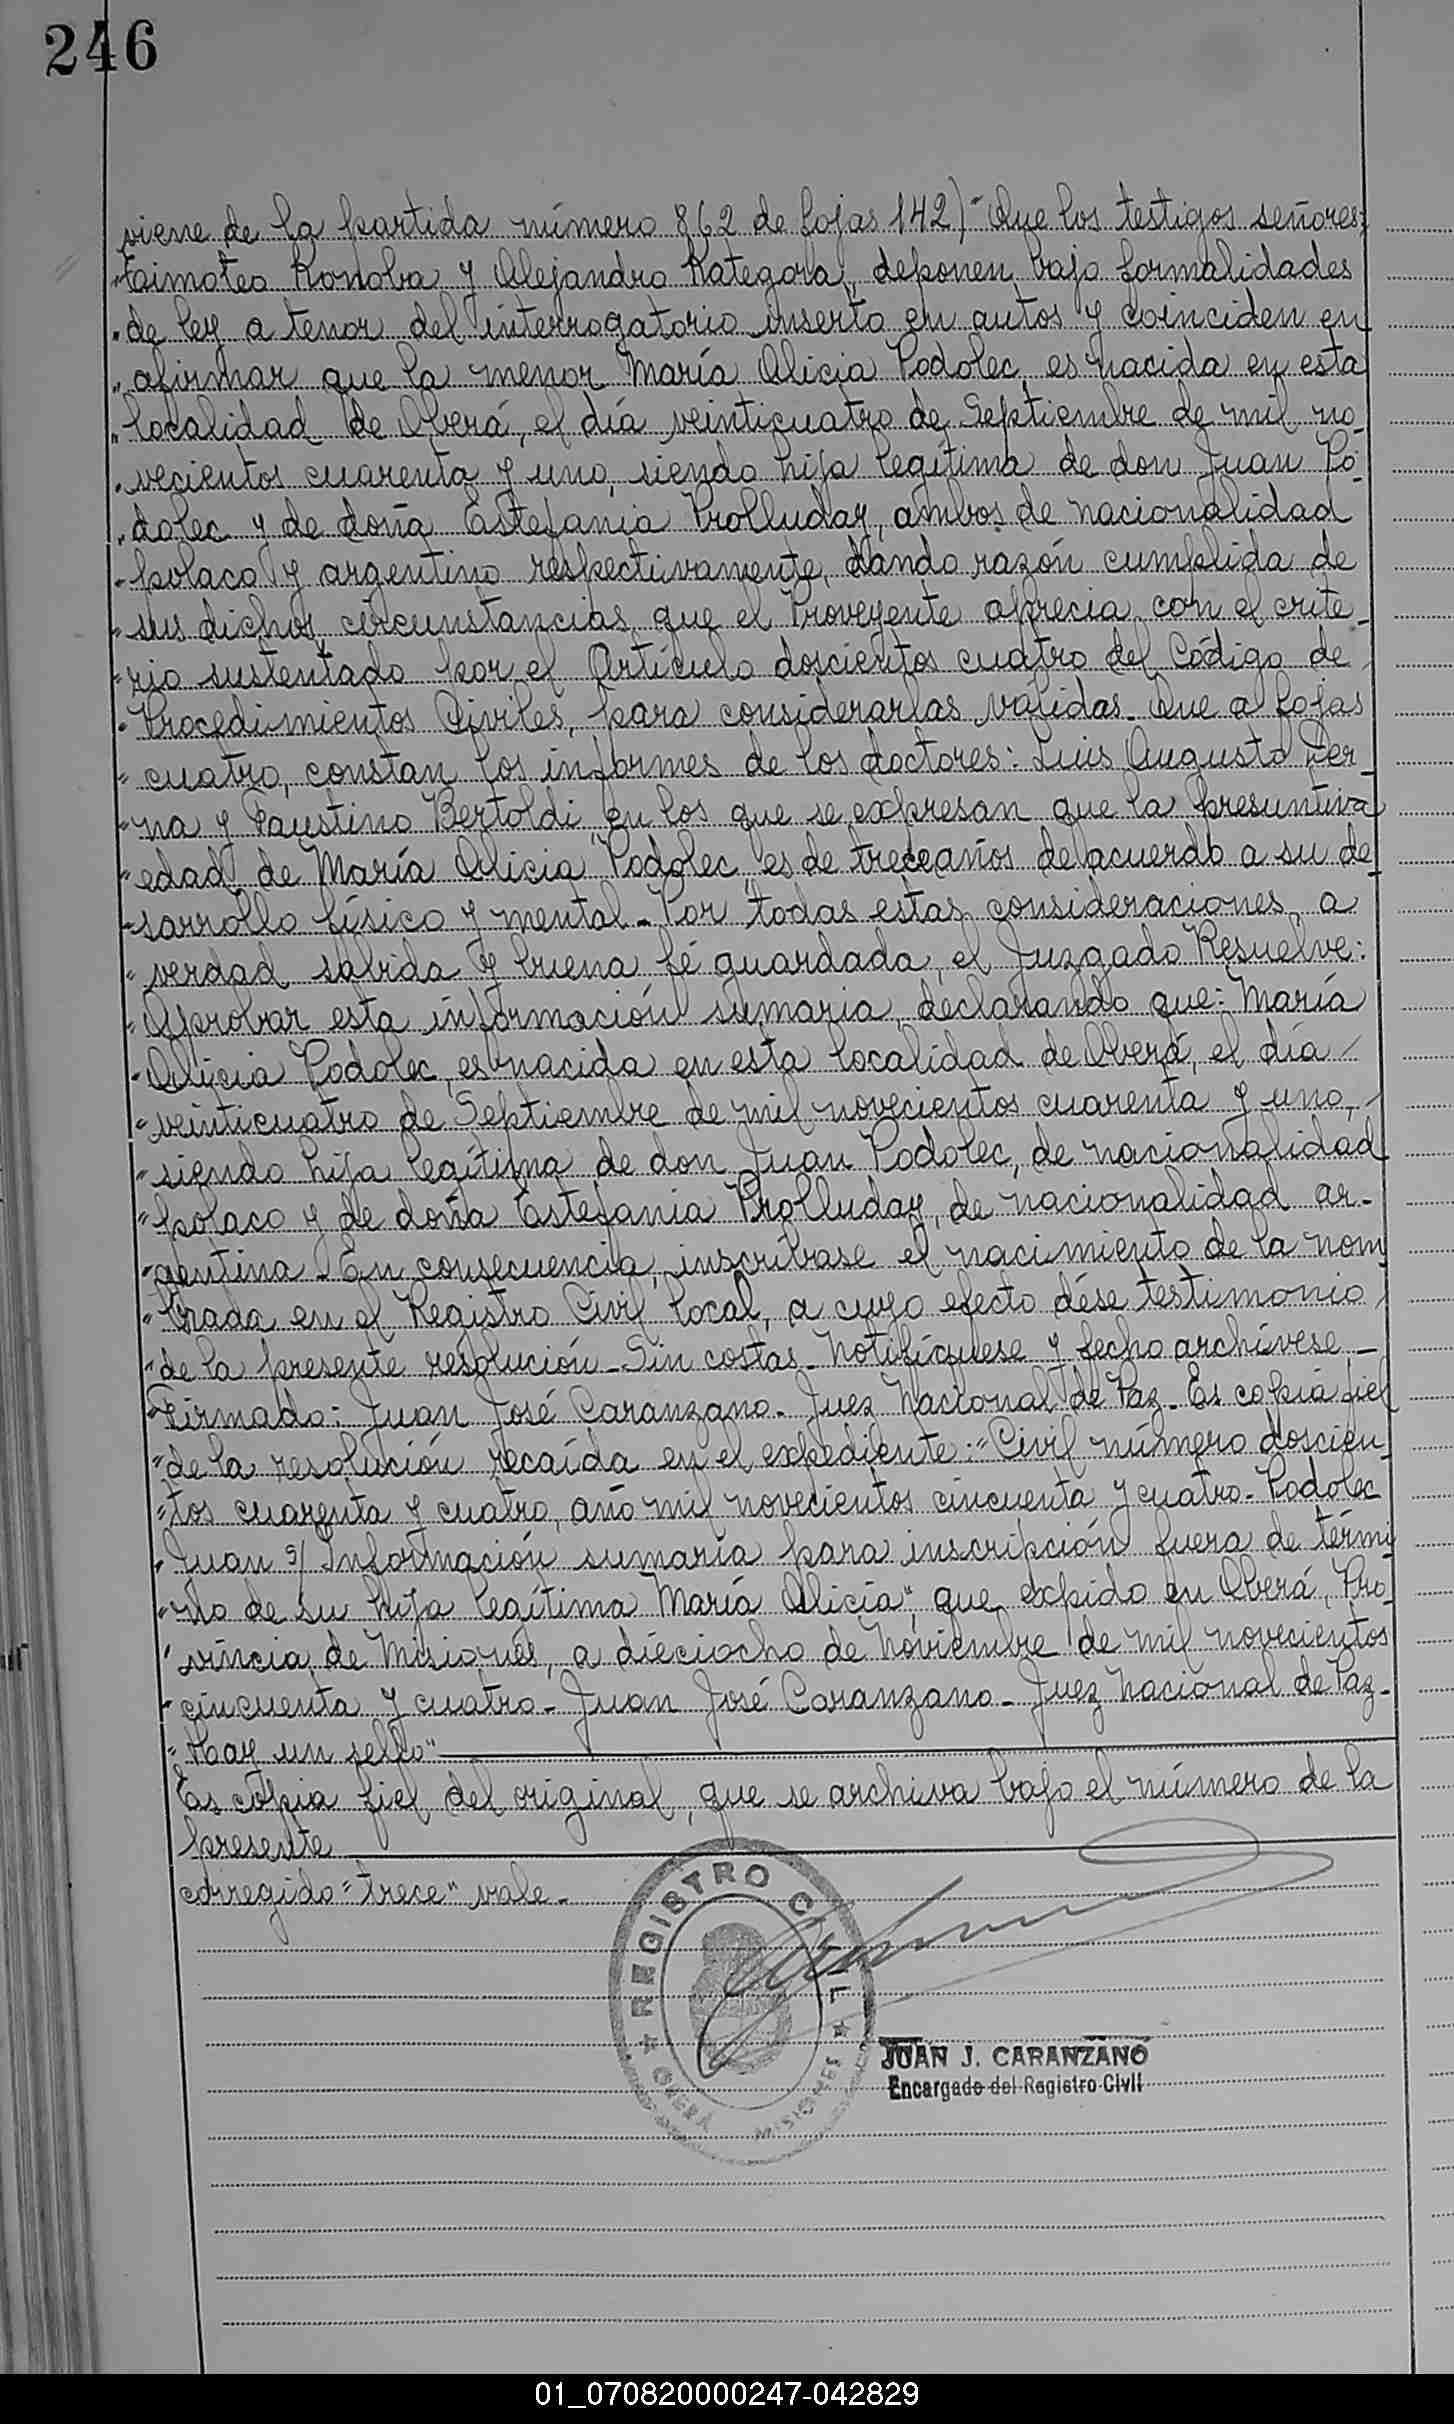 246
viene de la partida número 862 de fojas 142) "Que los testigos señores:
"Timoteo Konoba y Alejandro Kategora, deponen bajo formalidades
"de ley a tenor del interrogatorio inserto en autos y coinciden en
"afirmar que la menor María Alicia Podolec, es nacida en esta
"localidad de Oberá, el día veinticuatro de Septiembre de mil no-
"vecientos cuarenta y uno, siendo hija legítima de don Juan Po-
"dolec y de doña Estefania Prolluday, ambos de nacionalidad
"polaco y argentino respectivamente, dando razón cumplida de
"sus dichos, circunstancias que el Proveyente aprecia con el crite-
"rio sustentado por el Artículo doscientos cuatro del Código de
"Procedimientos Civiles, para considerarlas válidas. Que a fojas
"cuatro, constan los informes de los doctores: Luis Augusto Der-
"na y Faustino Bertoldi, en los que se expresan que la presuntiva
"edad de María Alicia Podolec, es de trece años de acuerdo a su de-
"sarrollo físico y mental. Por todas estas consideraciones, a
"verdad sabida y buena fé guardada, el Juzgado Resuelve:
"Aprobar esta información sumaria, declarando que: María
"Alicia Podolec, es nacida en esta localidad de Oberá, el día
"veinticuatro de Septiembre de mil novecientos cuarenta y uno,
"siendo hija legítima de don Juan Podolec, de nacionalidad
"polaco y de doña Estefania Prolluday, de nacionalidad ar-
"gentina. En consecuencia, inscríbase el nacimiento de la nom-
"brada en el Registro Civil local, a cuyo efecto dése testimonio
"de la presente resolución. Sin costas. Notifíquese y fecho archívese.-
"Firmado: Juan José Caranzano. Juez Nacional de Paz. Es copia fiel
"de la resolución recaída en el expediente: "Civil número doscien-
"tos cuarenta y cuatro, año mil novecientos cincuenta y cuatro. Podolec
"Juan s/ Información sumaria para inscripción fuera de térmi-
"no de su hija legítima María Alicia", que expido en Oberá, Pro-
"vincia de Misiones, a dieciocho de Noviembre de mil novecientos
"cincuenta y cuatro. Juan José Caranzano. Juez Nacional de Paz.
"Hay un sello"
Es copia fiel del original, que se archiva bajo el número de la
presente
corregido "trece" vale.
REGISTRO CIVIL
OBERÁ MISIONES
JUAN J. CARANZANO
Encargado del Registro Civil
01_070820000247-042829